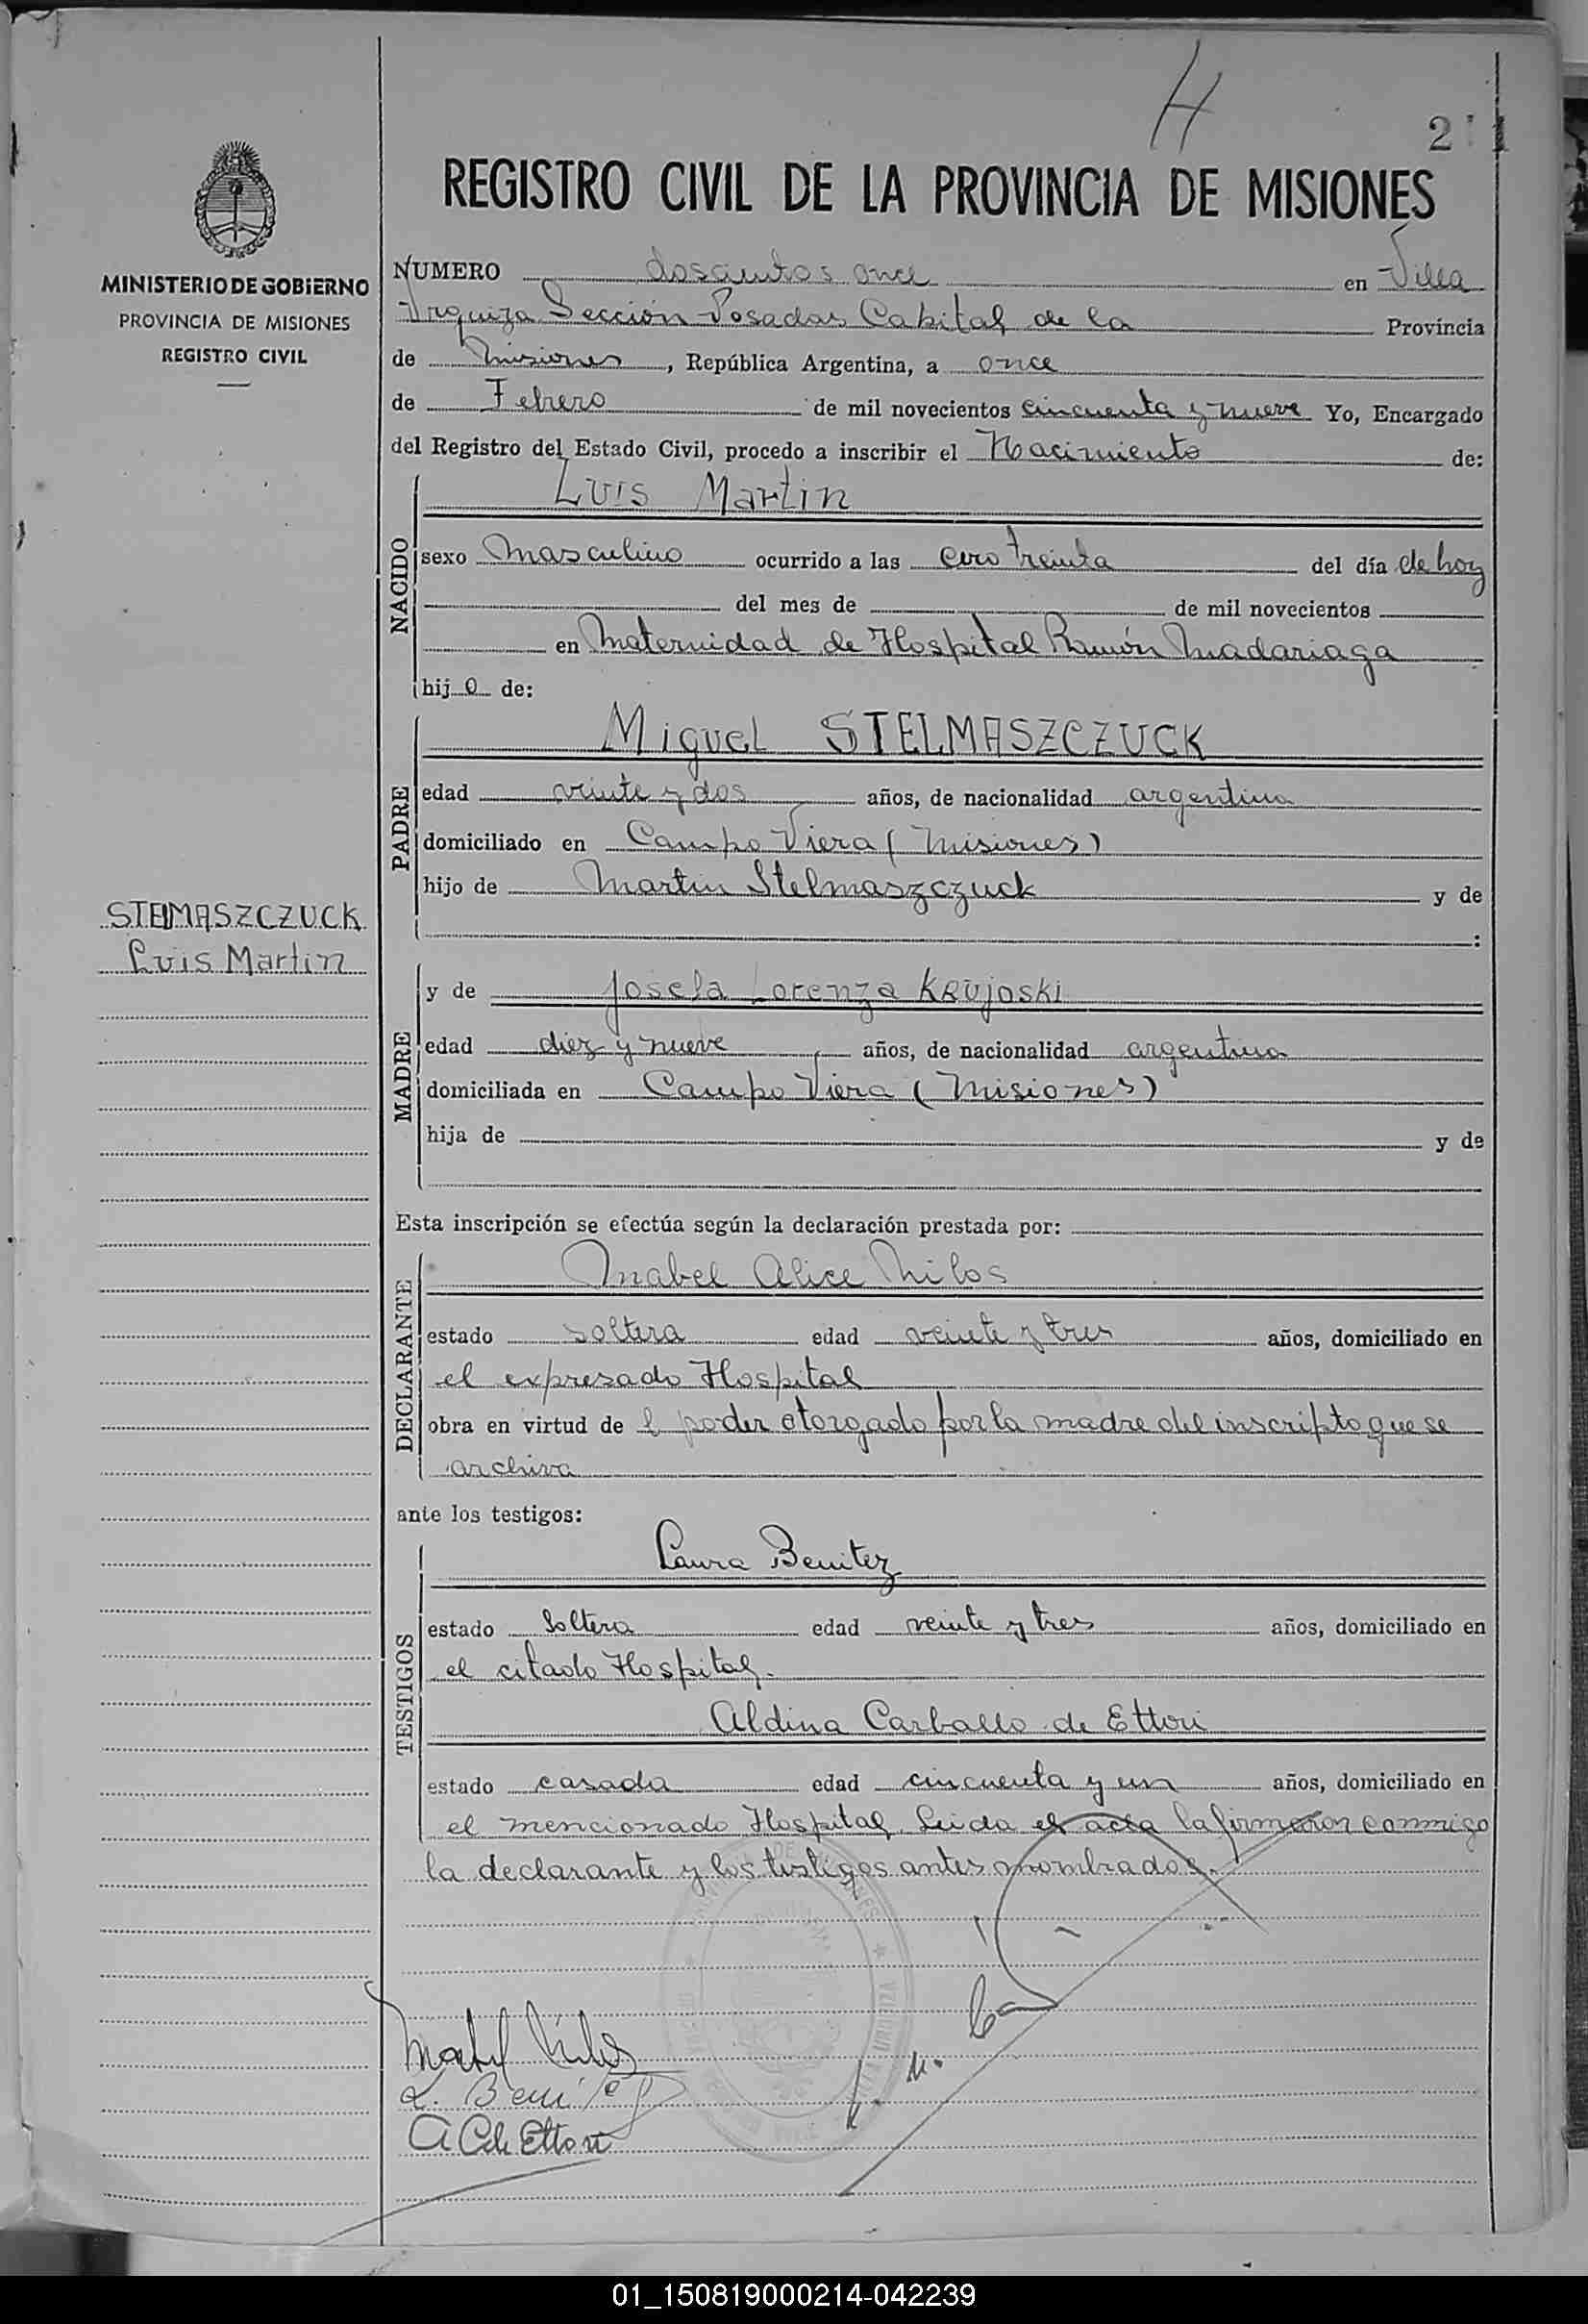 H
2 1
REGISTRO CIVIL DE LA PROVINCIA DE MISIONES
MINISTERIO DE GOBIERNO
PROVINCIA DE MISIONES
REGISTRO CIVIL
NUMERO doscientos once en Villa
Urquiza Sección Posadas Capital de la Provincia
de Misiones, República Argentina, a once
de Febrero de mil novecientos cincuenta y nueve Yo, Encargado
del Registro del Estado Civil, procedo a inscribir el Nacimiento de:
NACIDO
Luis Martin
sexo Masculino ocurrido a las cero treinta del día de hoy
del mes de de mil novecientos
en Maternidad de Hospital Ramón Madariaga
hij o de:
PADRE
Miguel STELMASZCZUCK
edad veinte y dos años, de nacionalidad argentina
domiciliado en Campo Viera (Misiones)
hijo de Martin Stelmaszczuck y de
:
STELMASZCZUCK
Luis Martin
MADRE
y de Josefa Lorenza Krujoski
edad diez y nueve años, de nacionalidad argentina
domiciliada en Campo Viera (Misiones)
hija de y de
Esta inscripción se efectúa según la declaración prestada por:
DECLARANTE
Mabel Alice Milos
estado soltera edad veinte y tres años, domiciliado en
el expresado Hospital
obra en virtud de l poder otorgado por la madre del inscripto que se
archiva
ante los testigos:
TESTIGOS
Laura Benitez
estado Soltera edad veinte y tres años, domiciliado en
el citado Hospital.
Aldina Carballo de Ettori
estado casada edad cincuenta y un años, domiciliado en
el mencionado Hospital. Leida el acta la firmaron conmigo
la declarante y los testigos antes nombrados.
URQUIZA
Mabel Milos
L. Benitez
A C de Ettori
01_150819000214-042239